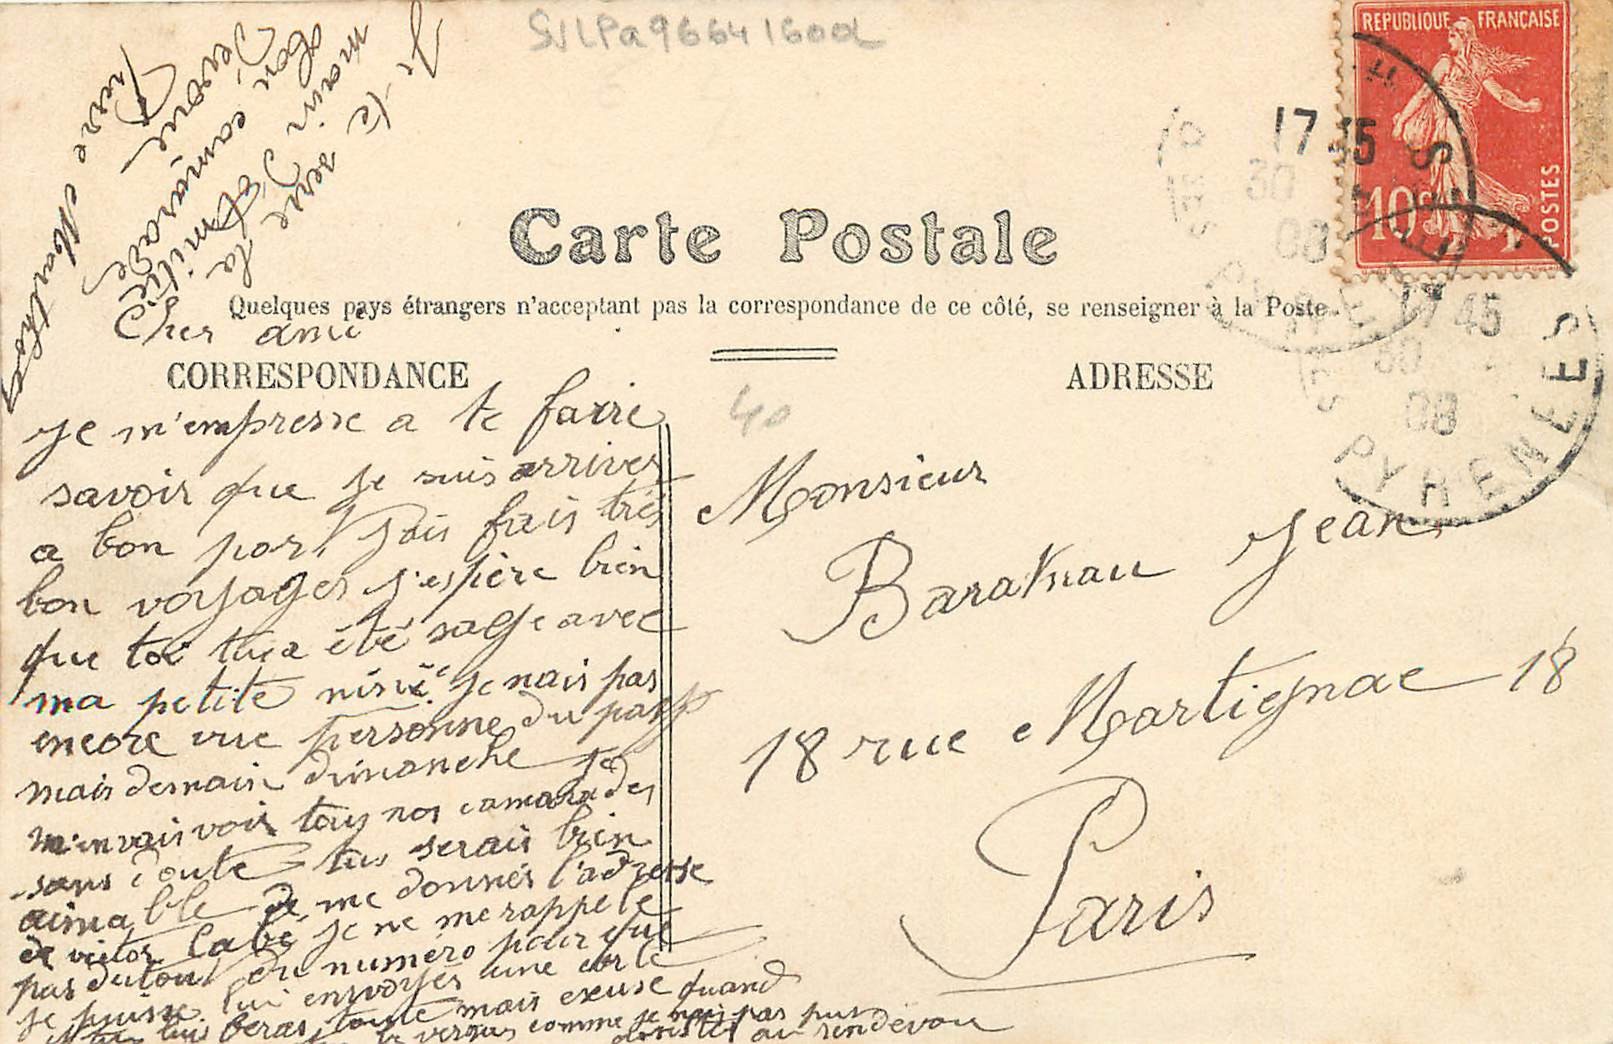 S/LPa96641600d
REPUBLIQUE FRANÇAISE
10c
POSTES
17 45
30
08
PYRENEES
17 45
30
08
PYRENEES
Carte Postale
Quelques pays étrangers n'acceptant pas la correspondance de ce côté, se renseigner à la Poste.
CORRESPONDANCE
ADRESSE
40
Cher ami
je m'empresse a te faire
savoir que je suis arriver
a bon port J'ais fais très
bon voyages j'espère bien
que toi tu a été sage avec
ma petite je nais pas
encore vue personne du pays
mais demain dimanche je
m'en vais voir tous nos camarades
sans doute tus serais bien
aimable de me donnés l'adresse
de victor Labé je ne me rappele
pas dutout du numéro pour que
je puisse lui envoyés une carte
tus feras toute mais excuse quand
comme je nais pas pus
au rendevou
Je te serre la
main d'Amitié
ton camarade
dévoué
Pierre
Monsieur
Jean
18 rue Martignac 18
Paris